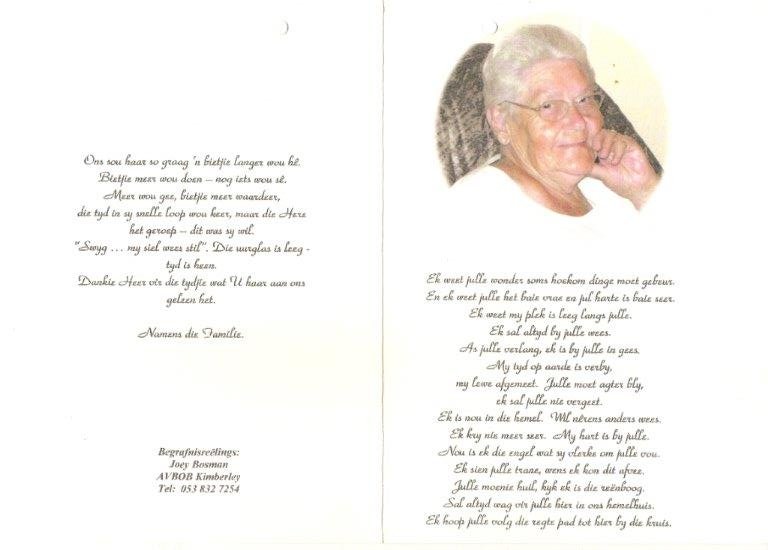 Ons sou haar so graag 'n bietjie langer wou hê.
Bietjie meer wou doen – nog iets wou sê.
Meer wou gee, bietjie meer waardeer,
die tyd in sy snelle loop wou keer, maar die Here
het geroep – dit was sy wil.
"Swyg ... my siel wees stil". Die uurglas is leeg -
tyd is heen.
Dankie Heer vir die tydjie wat U haar aan ons
geleen het.
Namens die Familie.
Begrafnisreëlings:
Joey Bosman
AVBOB Kimberley
Tel: 053 832 7254
Ek weet julle wonder soms hoekom dinge moet gebeur.
En ek weet julle het baie vrae en jul harte is baie seer.
Ek weet my plek is leeg langs julle.
Ek sal altyd by julle wees.
As julle verlang, ek is by julle in gees.
My tyd op aarde is verby,
my lewe afgemeet. Julle moet agter bly,
ek sal julle nie vergeet.
Ek is nou in die hemel. Wil nêrens anders wees.
Ek kry nie meer seer. My hart is by julle.
Nou is ek die engel wat sy vlerke om julle vou.
Ek sien julle trane, wens ek kon dit afvee.
Julle moenie huil, kyk ek is die reënboog.
Sal altyd wag vir julle hier in ons hemelhuis.
Ek hoop julle volg die regte pad tot hier by die kruis.